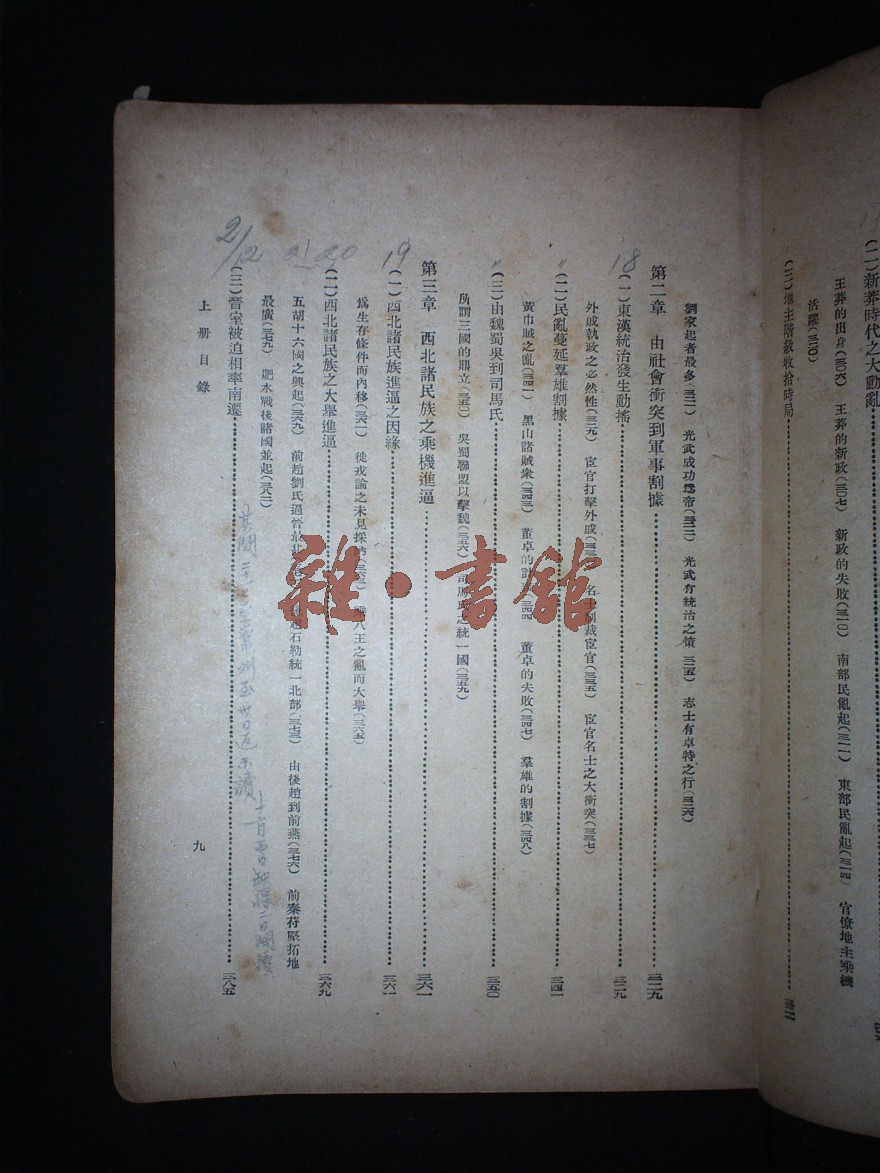 (二)新莽時代之大動亂
王莽的出身(三〇六) 王莽的新政(三〇七) 新政的失敗(三一〇) 南部民亂起(三一一) 東部民亂起(三一四) 官僚地主乘機
活躍(三二〇)
(三)地主階級收拾時局
劉家起者最多(三二一) 光武成功爲帝(三二三) 光武有統治之策(三二五) 志士有卓特之行(三二六)
第二章 由社會衝突到軍事割據 三二九
18
(一)東漢統治發生動搖 三二九
外戚執政之必然性(三二九) 宦官打擊外戚 名士制裁宦官(三三五) 宦官名士之大衝突(三三七)
〃
(二)民亂蔓延羣雄割據 三四一
黃巾賊之亂(三四一) 黑山諸賊衆(三四三) 董卓的 三四四 董卓的失敗(三四七) 羣雄的割據(三四八)
〃
(三)由魏蜀吳到司馬氏 三五〇
所謂三國的鼎立(三五〇) 吳蜀聯盟以擊魏(三五六) 司馬氏之統一國(三五九)
第三章 西北諸民族之乘機進逼 三六一
19
(一)西北諸民族進逼之因緣 三六一
爲生存條件而內移(三六一) 徙戎論之未見採納(三六三) 乘八王之亂而大舉(三六五)
20
(二)西北諸民族之大舉進逼 三六九
五胡十六國之興起(三六九) 前趙劉氏逼晉最 趙石勒統一北部(三七三) 由後趙到前燕(三七六) 前秦苻堅拓地
最廣(三七九) 肥水戰後諸國並起(三八二)
2/12
(三)晉室被迫相率南遷 三八五
上册目錄
九
雜·書館